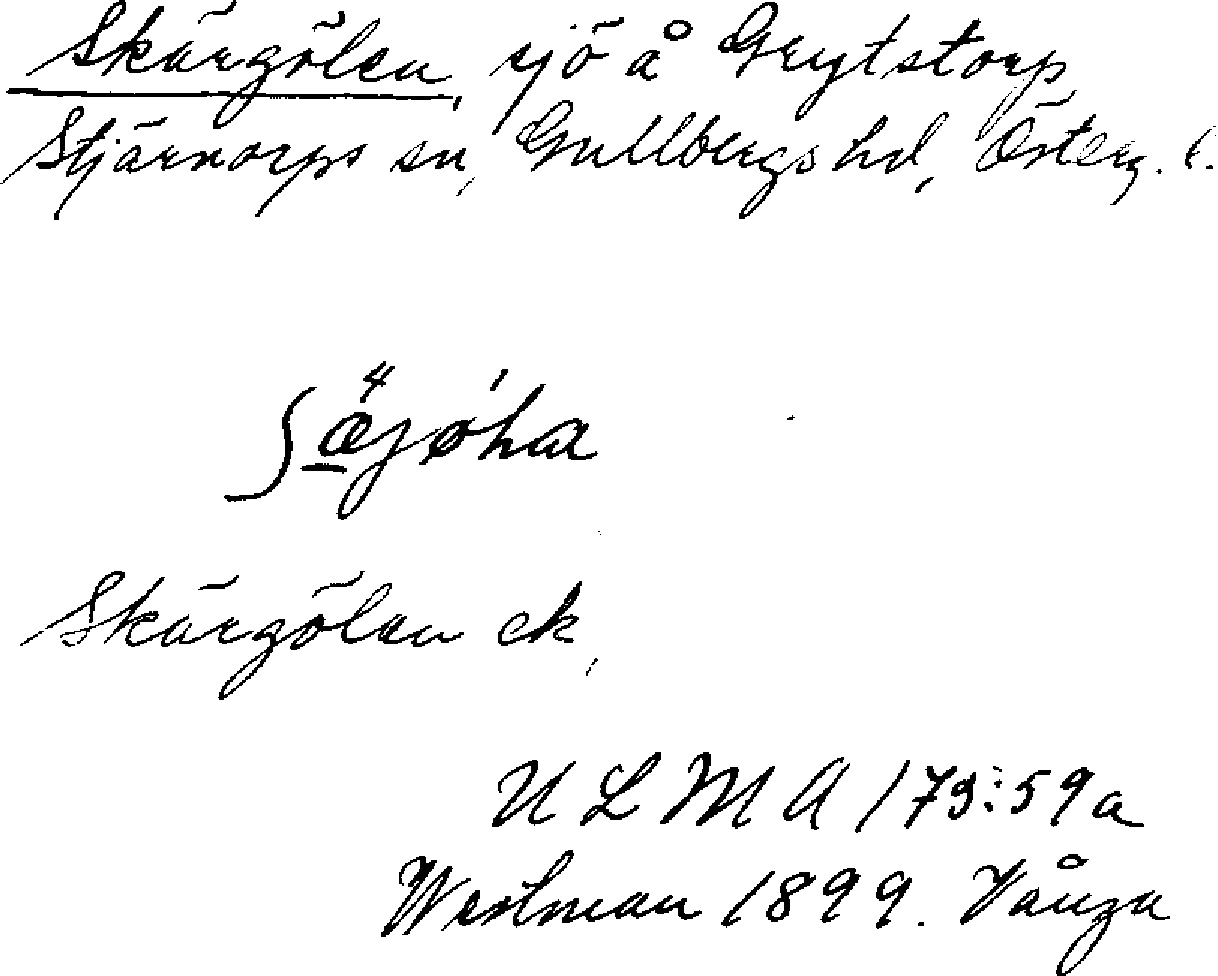 Skärgölen, sjö å Grytstorp
Stjärnorps sn, Gullbergs hd, Österg. l.
Skärgölen ek,
U L M A 173:59a
Westman 1899. Vånga